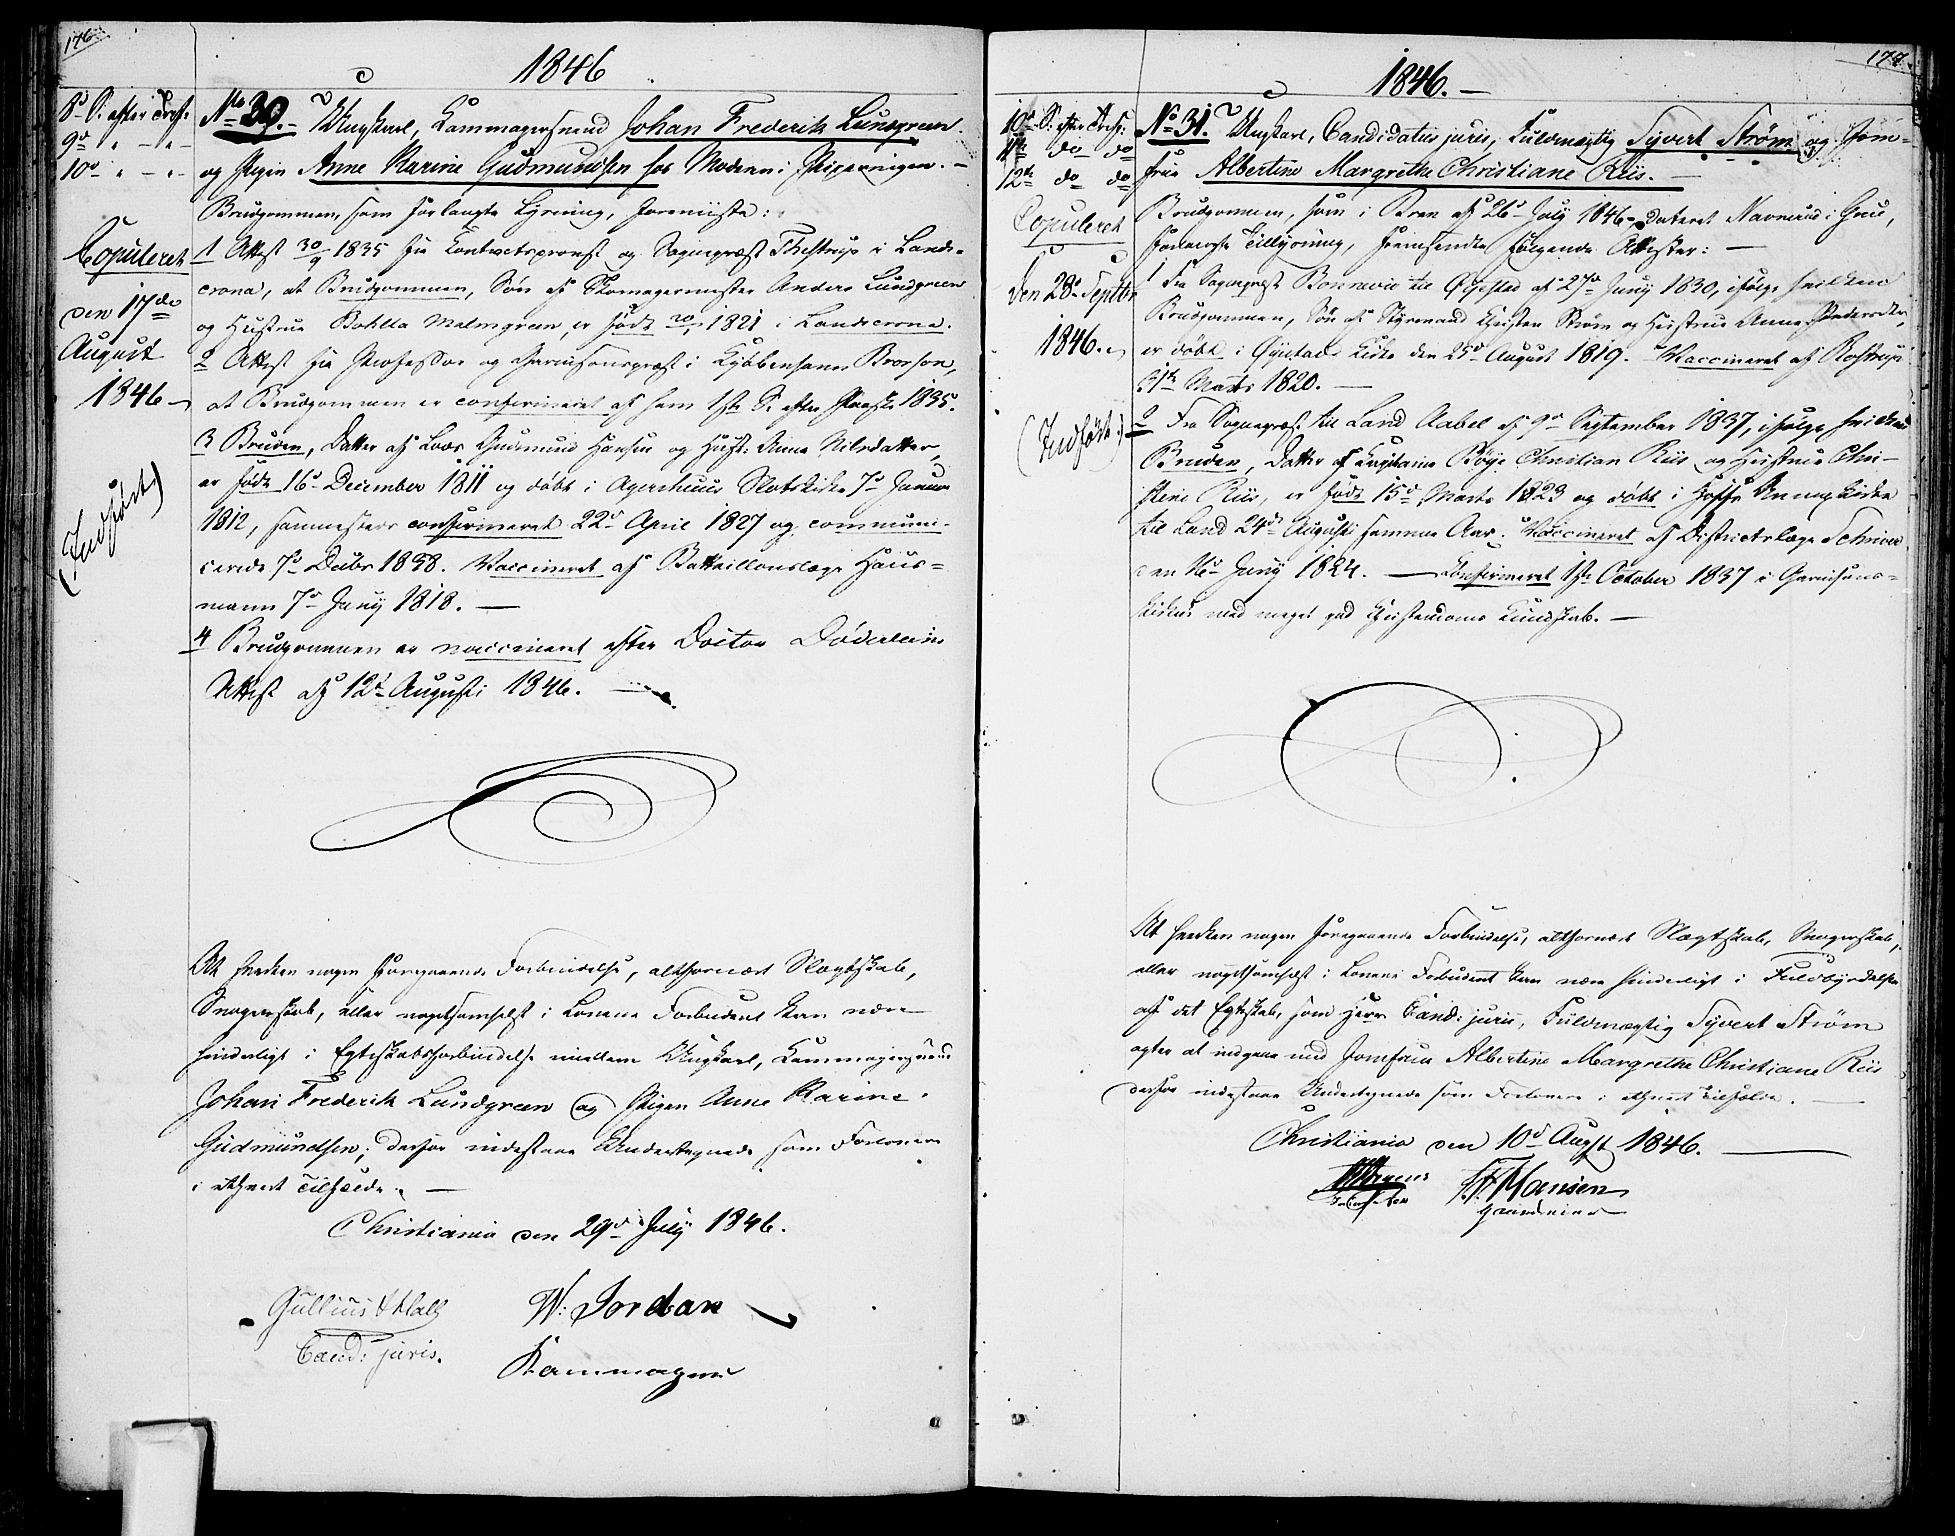 176.
1846
8de S. efter Tref.
9de " — " —
10de " — " —
Copuleret
den 17de
August
1846
(Indført)
No 30. Ungkarl, Kammagersvend Johan Frederik Lundgreen
og Pigen Anne Karine Gudmundsen hos Moderen i Pipervigen. —
Brudgommen, som forlangte Lysning, foreviiste:
1 Attest 30/9 1835 fra Contractsprovst og Sognepræst Thestrup i Lands-
crona, at Brudgommen, Søn af Skomagermester Anders Lundgreen
og Hustrue Bohlla Malmgreen, er født 1821 i Landscrona.
2 Attest fra Professor og Garnisonspræst i Kjøbenhavn Brorson,
at Brudgommen er confirmeret af ham 1ste S. efter Paaske 1835.
3 Bruden, Datter af Lods Gudmund Hansen og Hust: Anne Nilsdatter,
er født 16de December 1811 og døbt i Agershuus Slotskirke 7de Januar
1812, sammesteds confirmeret 22de April 1827 og communi-
cerede 7de Decbr 1838. Vaccineret af Battaillonslæge Haus-
mann 7de Juny 1818. —
4 Brudgommen er vaccineret efter Doctor Døderleins
Attest af 12te August 1846. —
At hverken nogen foregaaende Forbindelse, altfornært Slægtskab,
Svogerskab, eller nogetsomhelst i Lovene Forbudent kan være
hinderligt i Egteskabsforbindelse mellem Ungkarl, Kammagersvend
Johan Frederik Lundgreen og Pigen Anne Karine
Gudmundsen; derfor indestaae Undertegnede som Forlovere
i ethvert Tilfælde. —
Christiania den 29de July 1846.
Cand: juris.
W: Jordan
Kammager
177.
1846. —
10de S: efter Tref:
11te do do
12te do do
Copuleret
den 28de Septbr
1846.
(Indført.)
No 31. Ungkarl, Candidatus juris, Fuldmægtig Syvert Strøm og Jom-
frue Albertine Margrethe Christiane Riis. —
Brudgommen, som i Brev af 26de July 1846 dateret i
forlangte Tillysning, fremsendte følgende Attester: —
1 Fra Sognepræst Bonnevie til Øyestad af 27de Juny 1830, ifølge hvilken
Brudgommen, Søn af Styrmand Christen Strøm og Hustrue Anne Pedersdtr,
er døbt i Øyestads Kirke den 25de August 1819. Vaccineret af
31te Marts 1820. —
2 Fra Sognepræst til Land Aabel af 9de September 1837, ifølge hvilken
Bruden, Datter af Capitaine Bøye Christian Riis og Hustrue Chri-
stine Riis, er født 15de Marts 1823 og døbt i Hoffs Annexkirke
til Land 24de August samme Aar. Vaccineret af Districtslæge
den 16de Juny 1824. — Confirmeret 1ste October 1837 i Garnisons-
kirken med meget god Christendoms Kundskab. —
At hverken nogen foregaaende Forbindelse, altfornært Slægtskab, Svogerskab,
eller nogetsomhelst i Lovene Forbudent kan være hinderligt i Fuldbyrdelsen
af det Egteskab, som Herr Cand: juris, Fuldmægtig Syvert Strøm
agter at indgaae med Jomfrue Albertine Margrethe Christiane Riis
derfor indestaae Undertegnede som Forlovere i ethvert Tilfælde. —
Christiania den 10de Augst 1846. —
Hansen